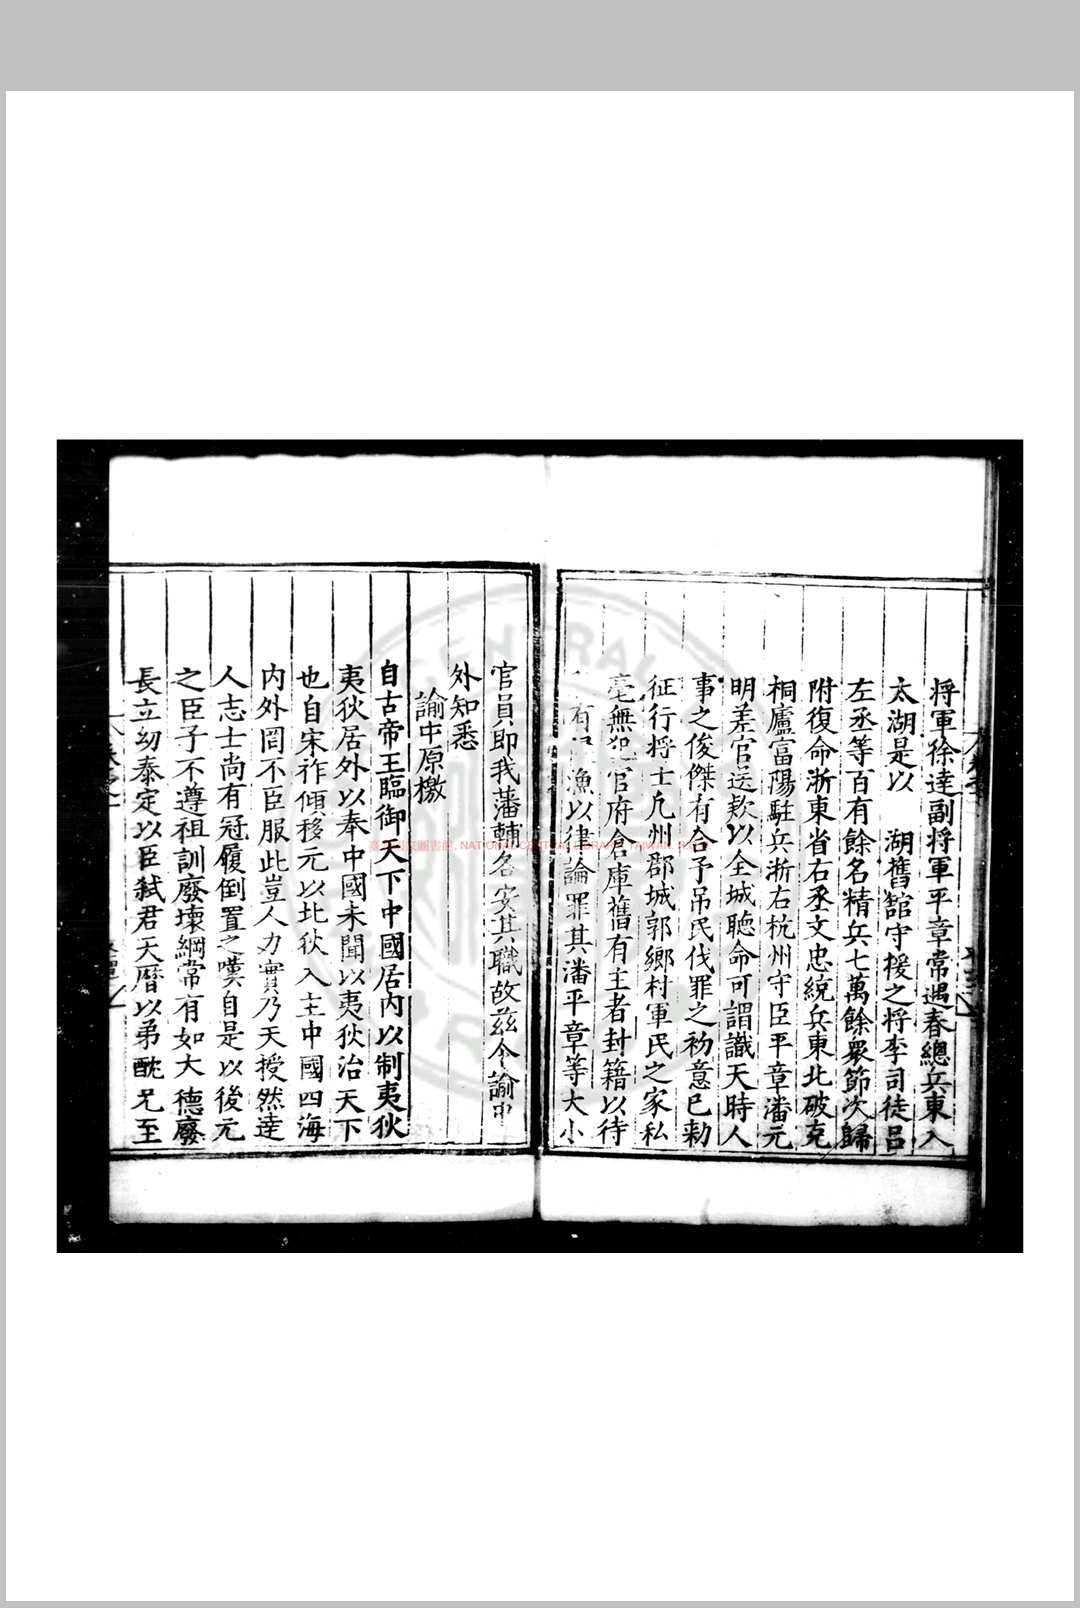 將軍徐達副將軍平章常遇春總兵東入
太湖是以 湖舊館守援之將李司徒呂
左丞等百有餘名精兵七萬餘眾節次歸
附復命浙東省右丞文忠統兵東北破克
桐廬富陽駐兵浙右杭州守臣平章潘元
明差官送款以全城聽命可謂識天時人
事之俊傑有合予吊民伐罪之初意已勑
征行將士凡州郡城郭鄉村軍民之家私
毫無犯官府倉庫舊有主者封籍以待
有 漁以律論罪其潘平章等大小
官員即我藩輔各安其職故茲令諭中
外知悉
諭中原檄
自古帝王臨御天下中國居內以制夷狄
夷狄居外以奉中國未聞以夷狄治天下
也自宋祚傾移元以北狄入主中國四海
內外罔不臣服此豈人力實乃天授然達
人志士尚有冠履倒置之嘆自是以後元
之臣子不遵祖訓廢壞綱常有如大德廢
長立幼泰定以臣弒君天曆以弟酖兄至
NATIONAL CENTRAL LIBRARY, TAIWAN